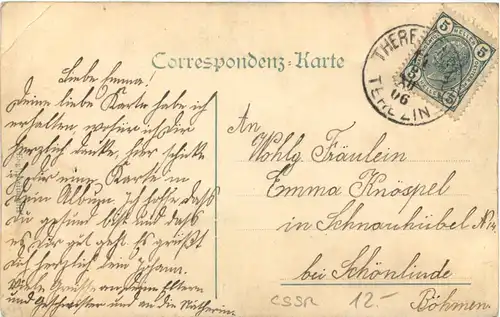 Correspondenz-Karte
THERE
TEREZIN
06
5 HELLER 5
5 5
Liebe Emma!
Deine liebe Karte habe ich
erhalten, wofür ich dir
herzlich danke, hier schicke
ich dir eine Karte in
dein Album. Ich hoffe daß
du gesund bist und daß
es Dir gut geht. Es grüßt
dich herzlich dein Johann.
Viele Grüße an deine Eltern
und Geschwister und an die Katherina
An
Wohlg. Fräulein
Emma Knöspel
in Schnauhübel N. 14
bei Schönlinde
Böhmen
CSSR 12.-